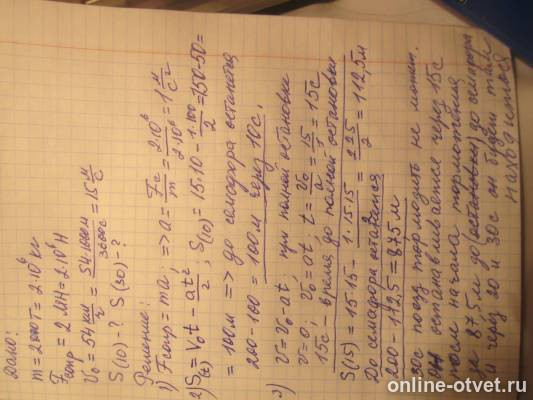 Дано:
m = 2000т = 2·10⁶ кг
Fсопр = 2 МН = 2·10⁶ Н
V₀ = 54 км/ч = 54·1000м/3600с = 15 м/с
S(10) - ? S(30) - ?
Решение:
1) Fсопр = ma; => a = Fс/m = 2·10⁶/2·10⁶ = 1 м/с²
2) S(t) = V₀t - at²/2; S(10) = 15·10 - 1·100/2 = 150-50 =
= 100м => до семафора останется
200-100 = 100м через 10с.
3) V = V₀ - at, при полной остановке
V = 0; V₀ = at, t = V₀/a = 15/1 = 15с
15с - время до полной остановки
S(15) = 15·15 - 1·15·15/2 = 225/2 = 112,5м
До семафора останется
200 - 112,5 = 87,5м
30с поезд тормозить не может.
Он останавливается через 15с
после начала торможения
за 87,5м до (остановки) до семафора
и через 20 и 30с он будет там
находиться
online-otvet.ru